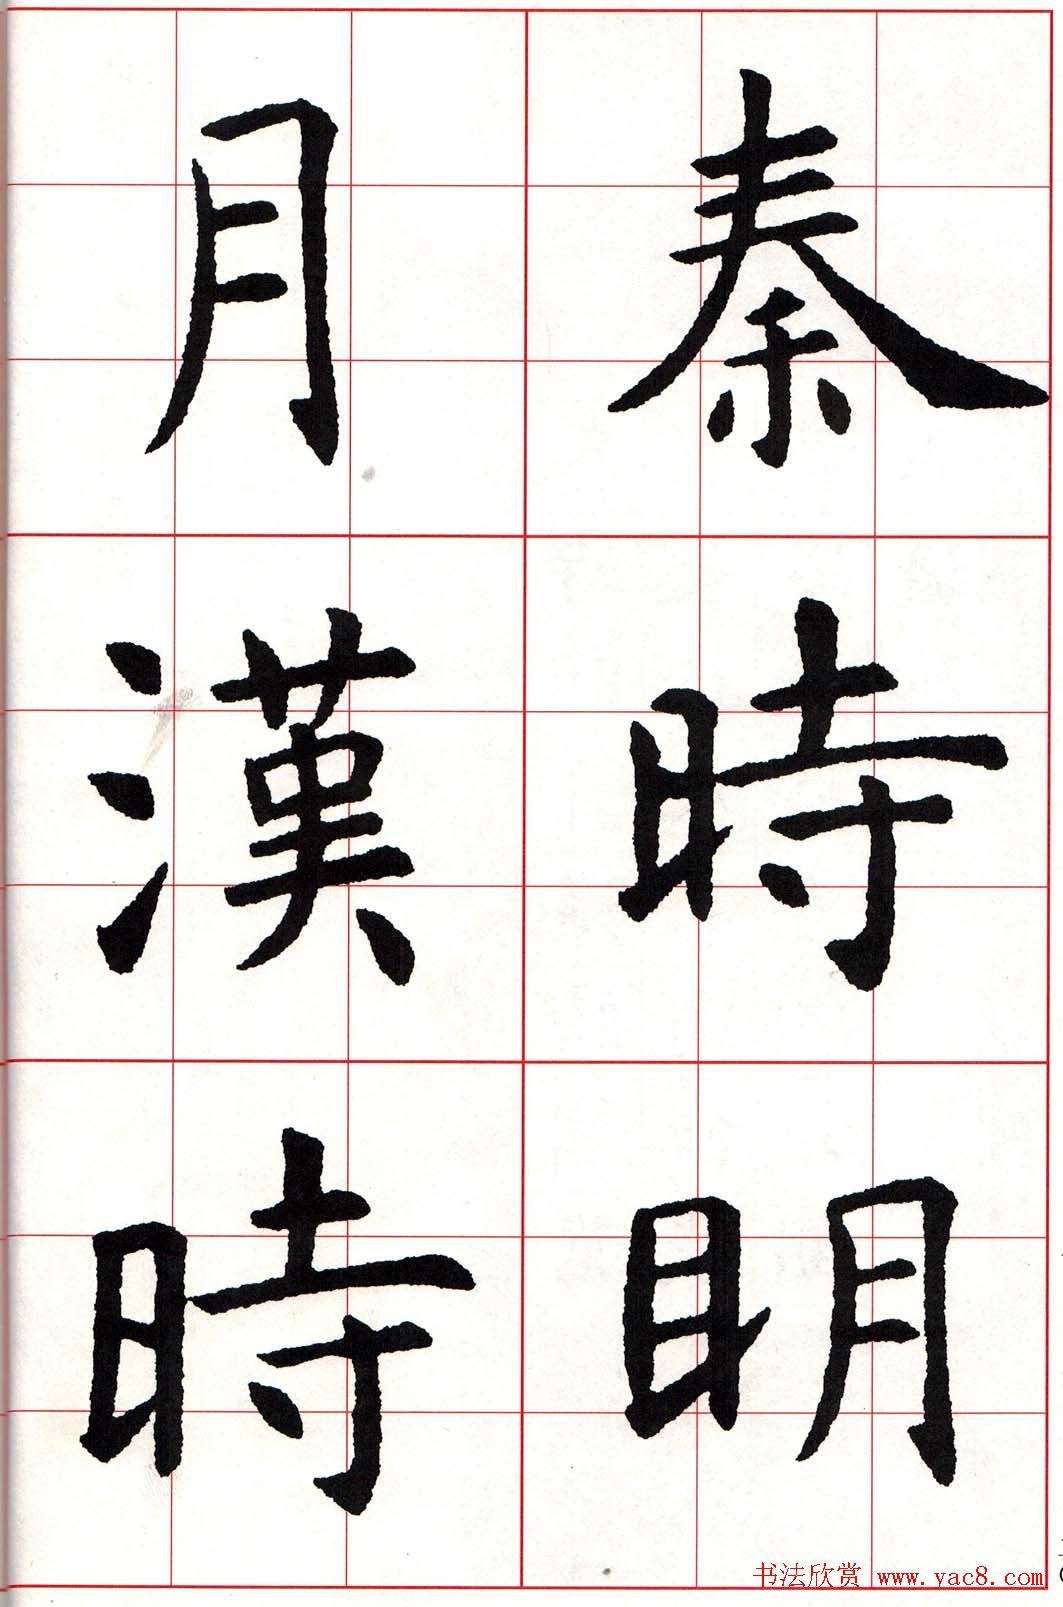 秦時明
月漢時
书法欣赏 www.yac8.com